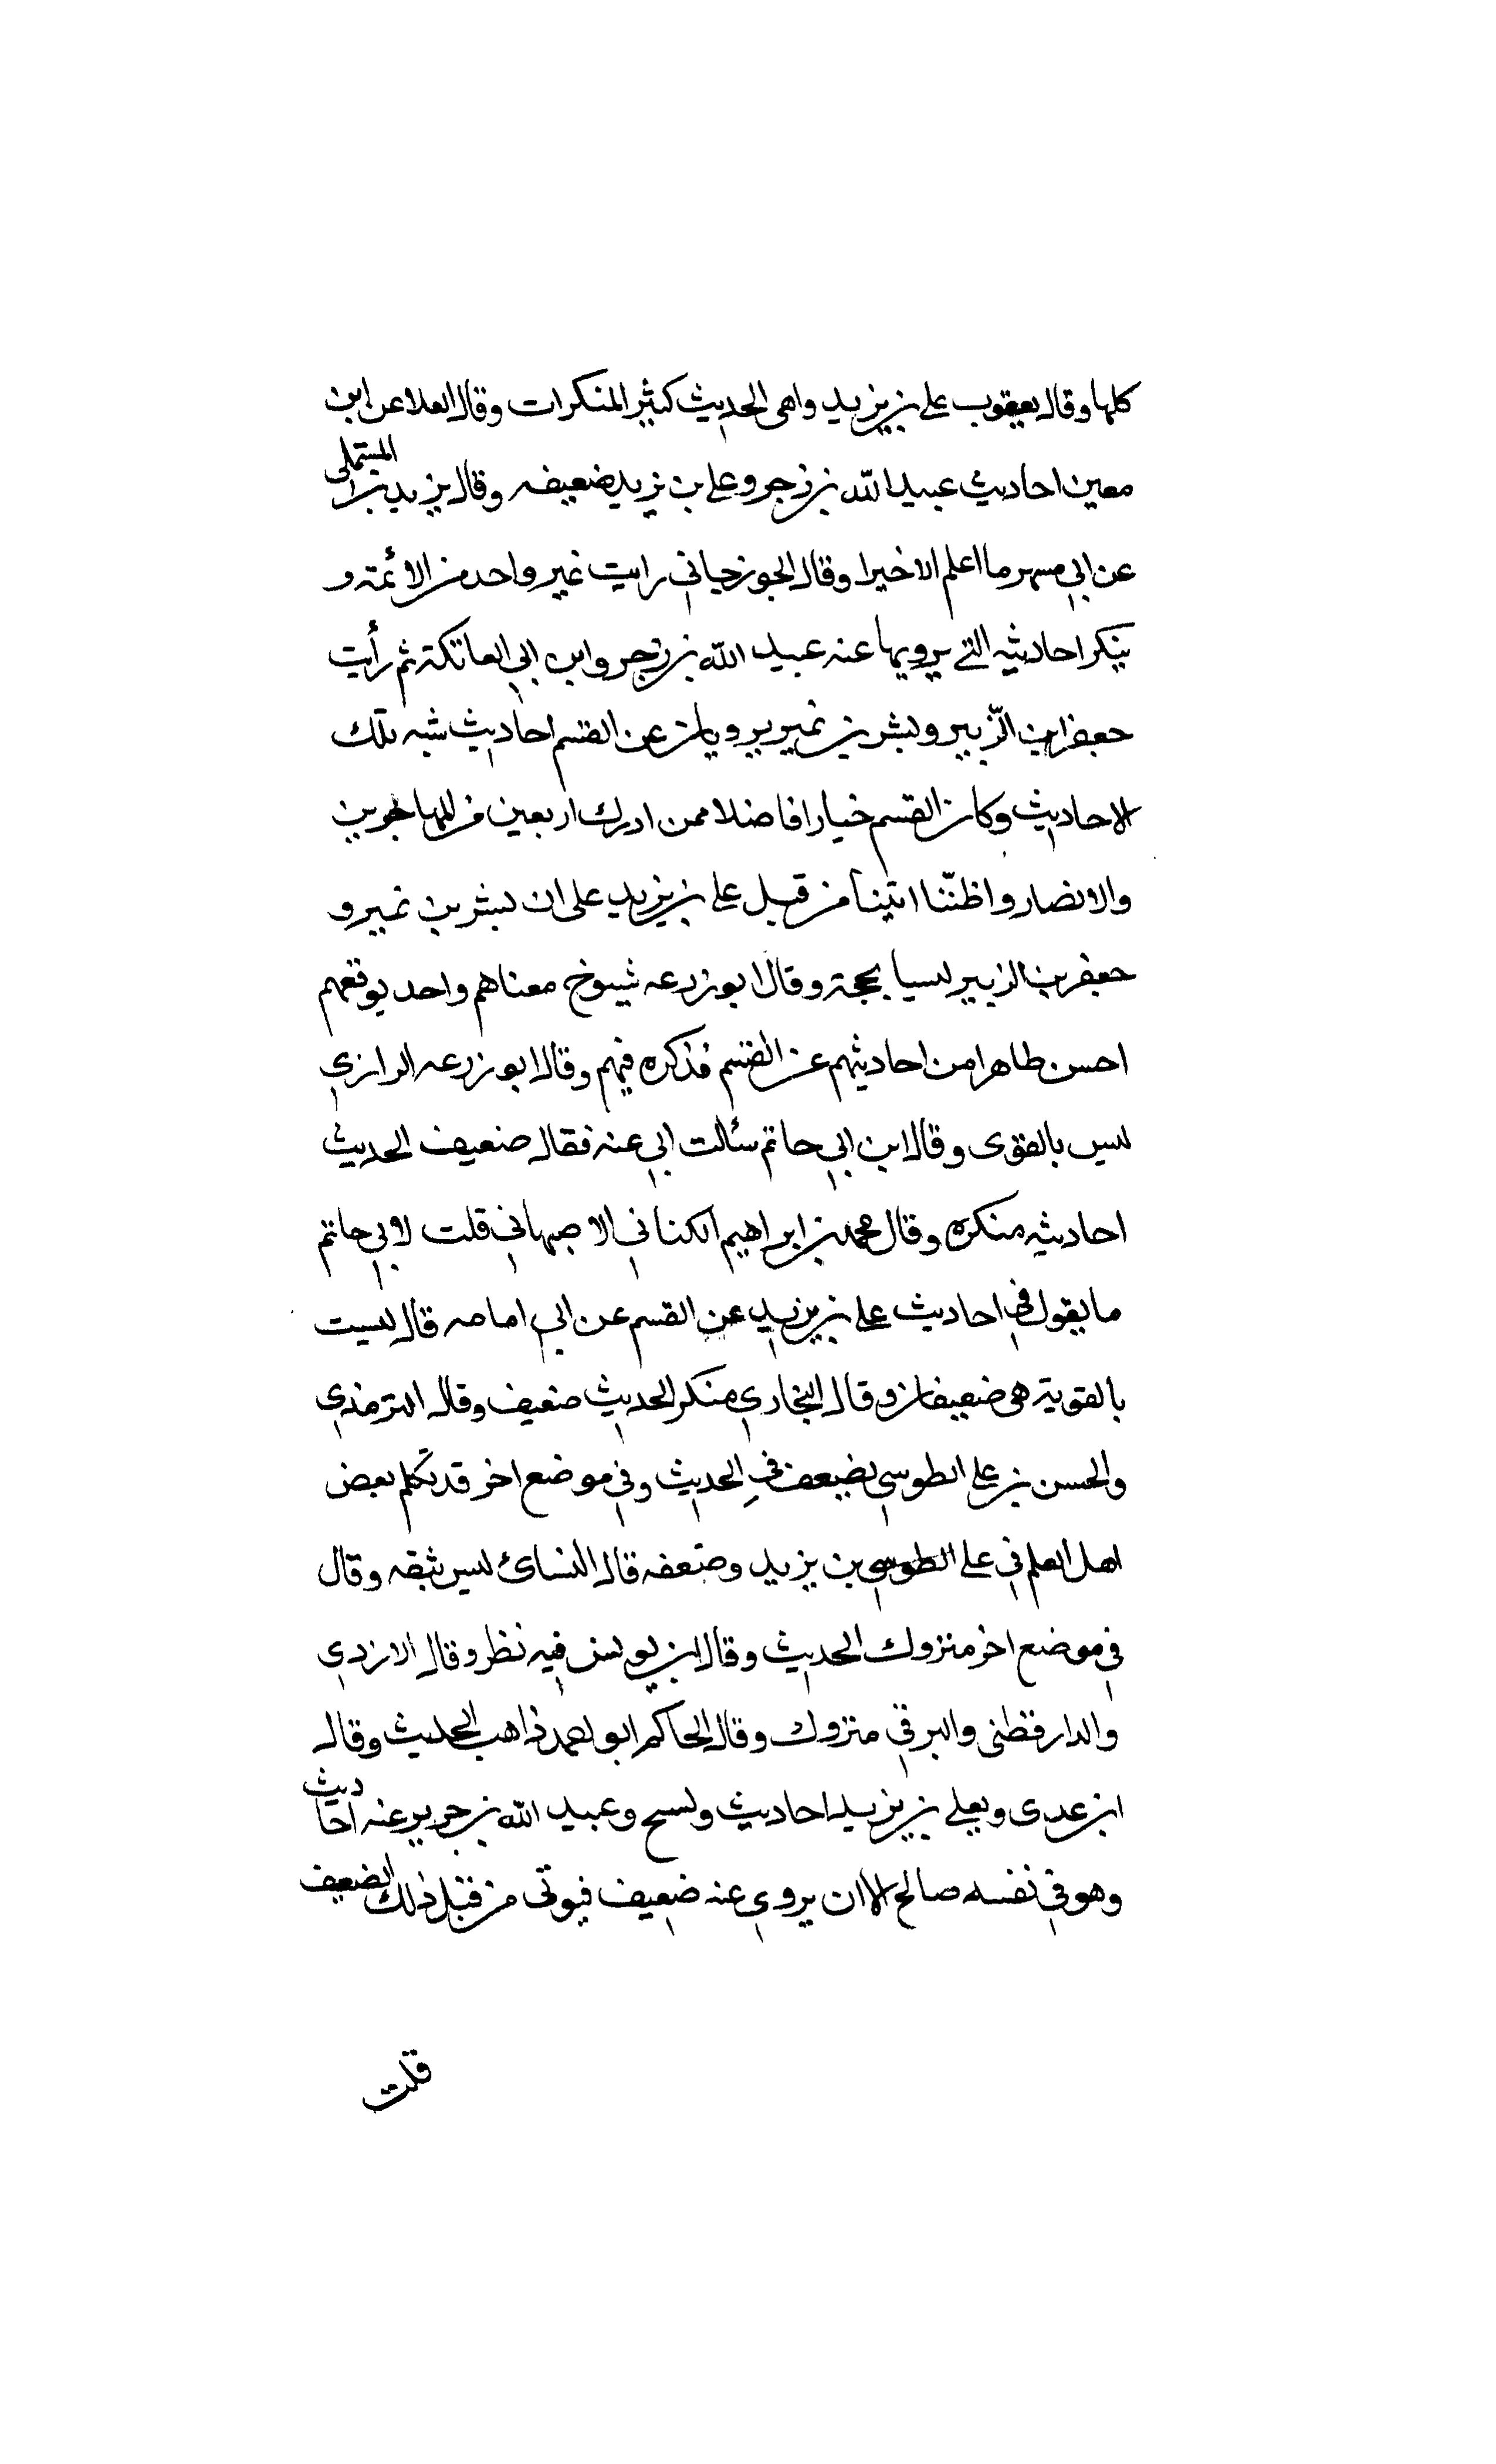 كلها وقال يعقوب علي بن يزيد واهى الحديث كثير المنكرات وقال العلا عن ابن
معين احاديث عبيد الله بن زحر وعلى بن يزيد ضعيفه وقال يزيد بن المستملى
عن ابي مسهر ما اعلم الا خيرا وقال الجوزجاني رايت غير واحد من الائمة و
ينكر احاديثه التي يرويها عنه عبيد الله بن زحر وابن ابي العاتكة ثم رأيت
جعفر ابن الزّبير وبشر بن نمير يرويان عن القسم احاديث شبه تلك
الاحاديث وكان القسم خيارا فاضلا ممن ادرك اربعين من المهاجرين
والانصار واظنّنا اتينا من قبل علي بن يزيد على ان بشر بن نمير و
جعفر بن الزبير ليسيا بحجة وقال ابو زرعه شيوخ معناهم واحد يوقعهم
احسن طاهرا من احاديثهم عن القسم فذكره فيهم وقال ابو زرعه الرازي
ليس بالقوى وقال ابن ابي حاتم سئالت ابي عنه فقال ضعيف الحديث
احاديثه منكره وقال محمد بن ابراهيم الكناني الاصبهاني قلت لابي حاتم
ما يقول في احاديث علي بن يزيد عن القسم عن ابي امامه قال ليست
بالقوية هى ضعيفان وقال البخاري منكر الحديث ضعيف وقال الترمذي
والحسن بن علي الطوسي يضعف في الحديث وفي موضع اخر قد تكلم بعض
اهل العلم في على الطوسي بن يزيد وضعفه قال النسائ ليس بثقه وقال
في موضع اخر متروك الحديث وقال ابن يونس فيه نظر وقال الازدي
والدارقطنى والبرقي متروك وقال الحاكم ابو احمد ذاهب الحديث وقال
ابن عدى ويعلي بن يزيد احاديث ولسح وعبيد الله بن جرير عنه احاديث
وهو في نفسه صالح الا ان يروي عنه ضعيف فيوتى من قبل ذلك الضعيف
قلت